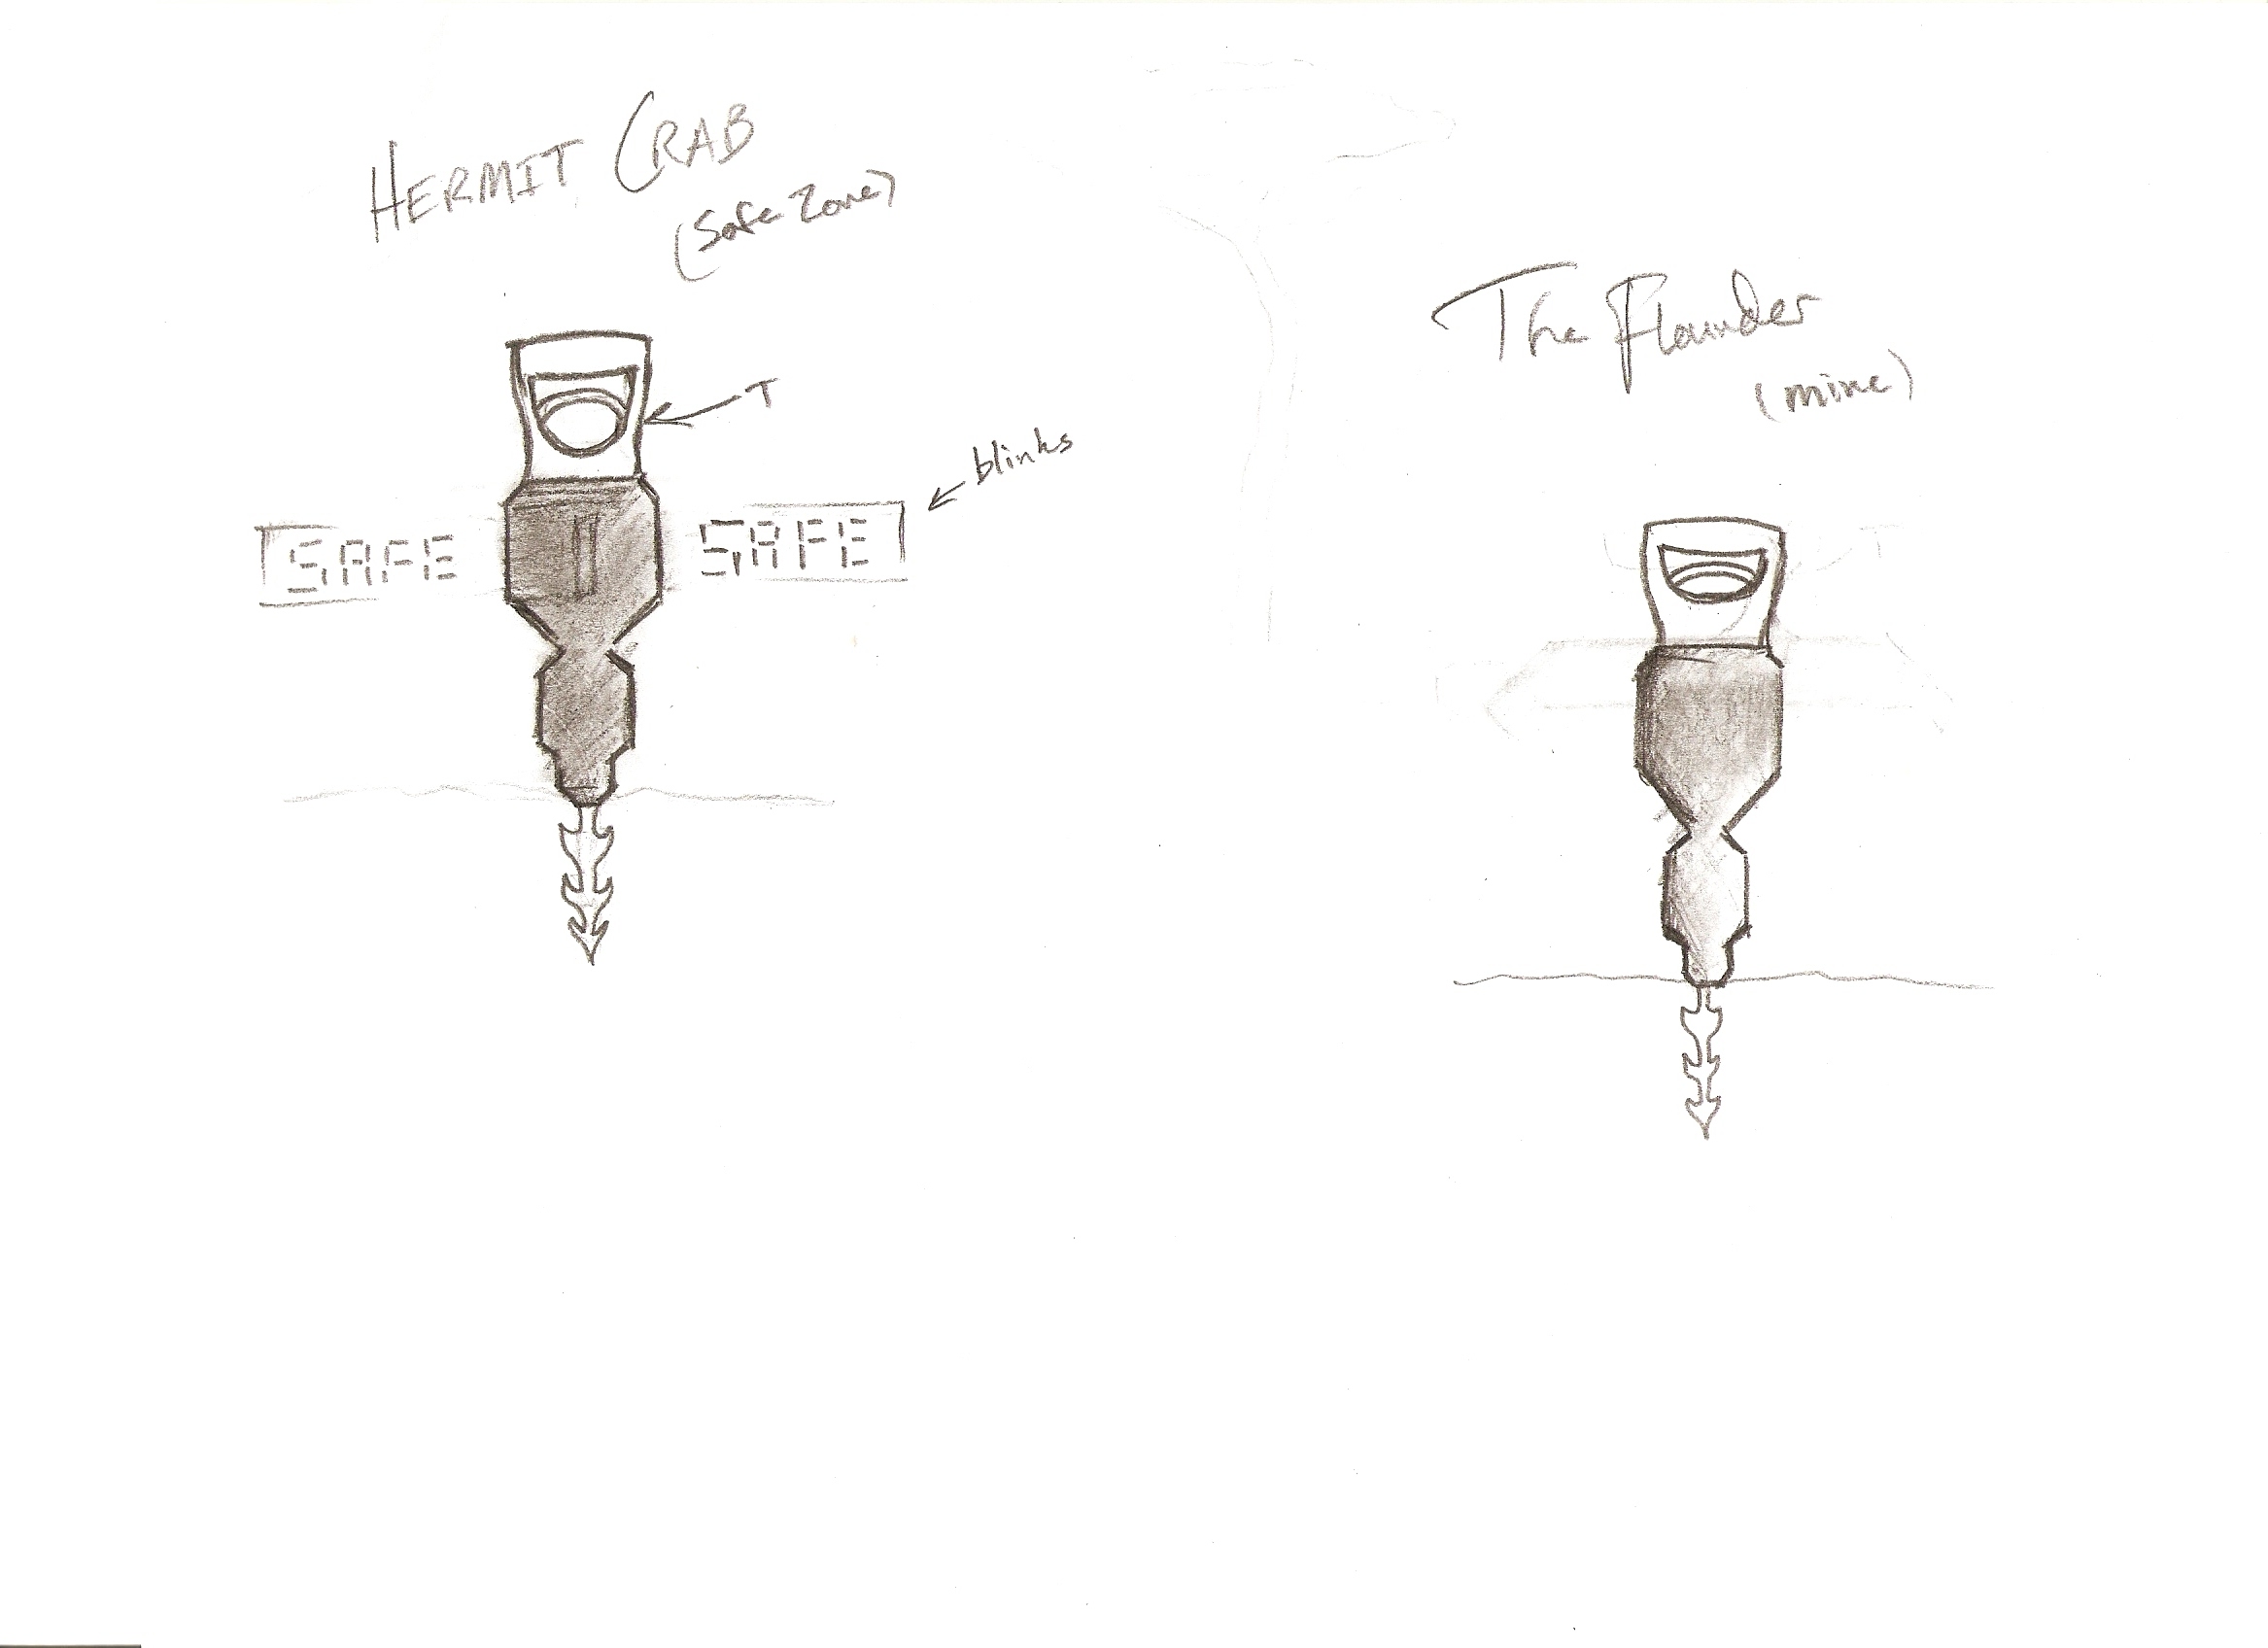 HERMIT CRAB
(Safe Zone)
T
blinks
SAFE SAFE
The Flounder
(mine)
T